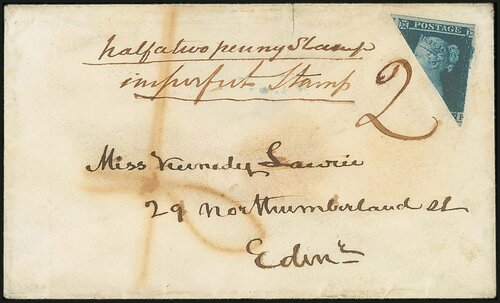 POSTAGE
half a two penny Stamp
imperfect Stamp
2
Miss Kennedy Lawrie
29 Northumberland St
Edinr